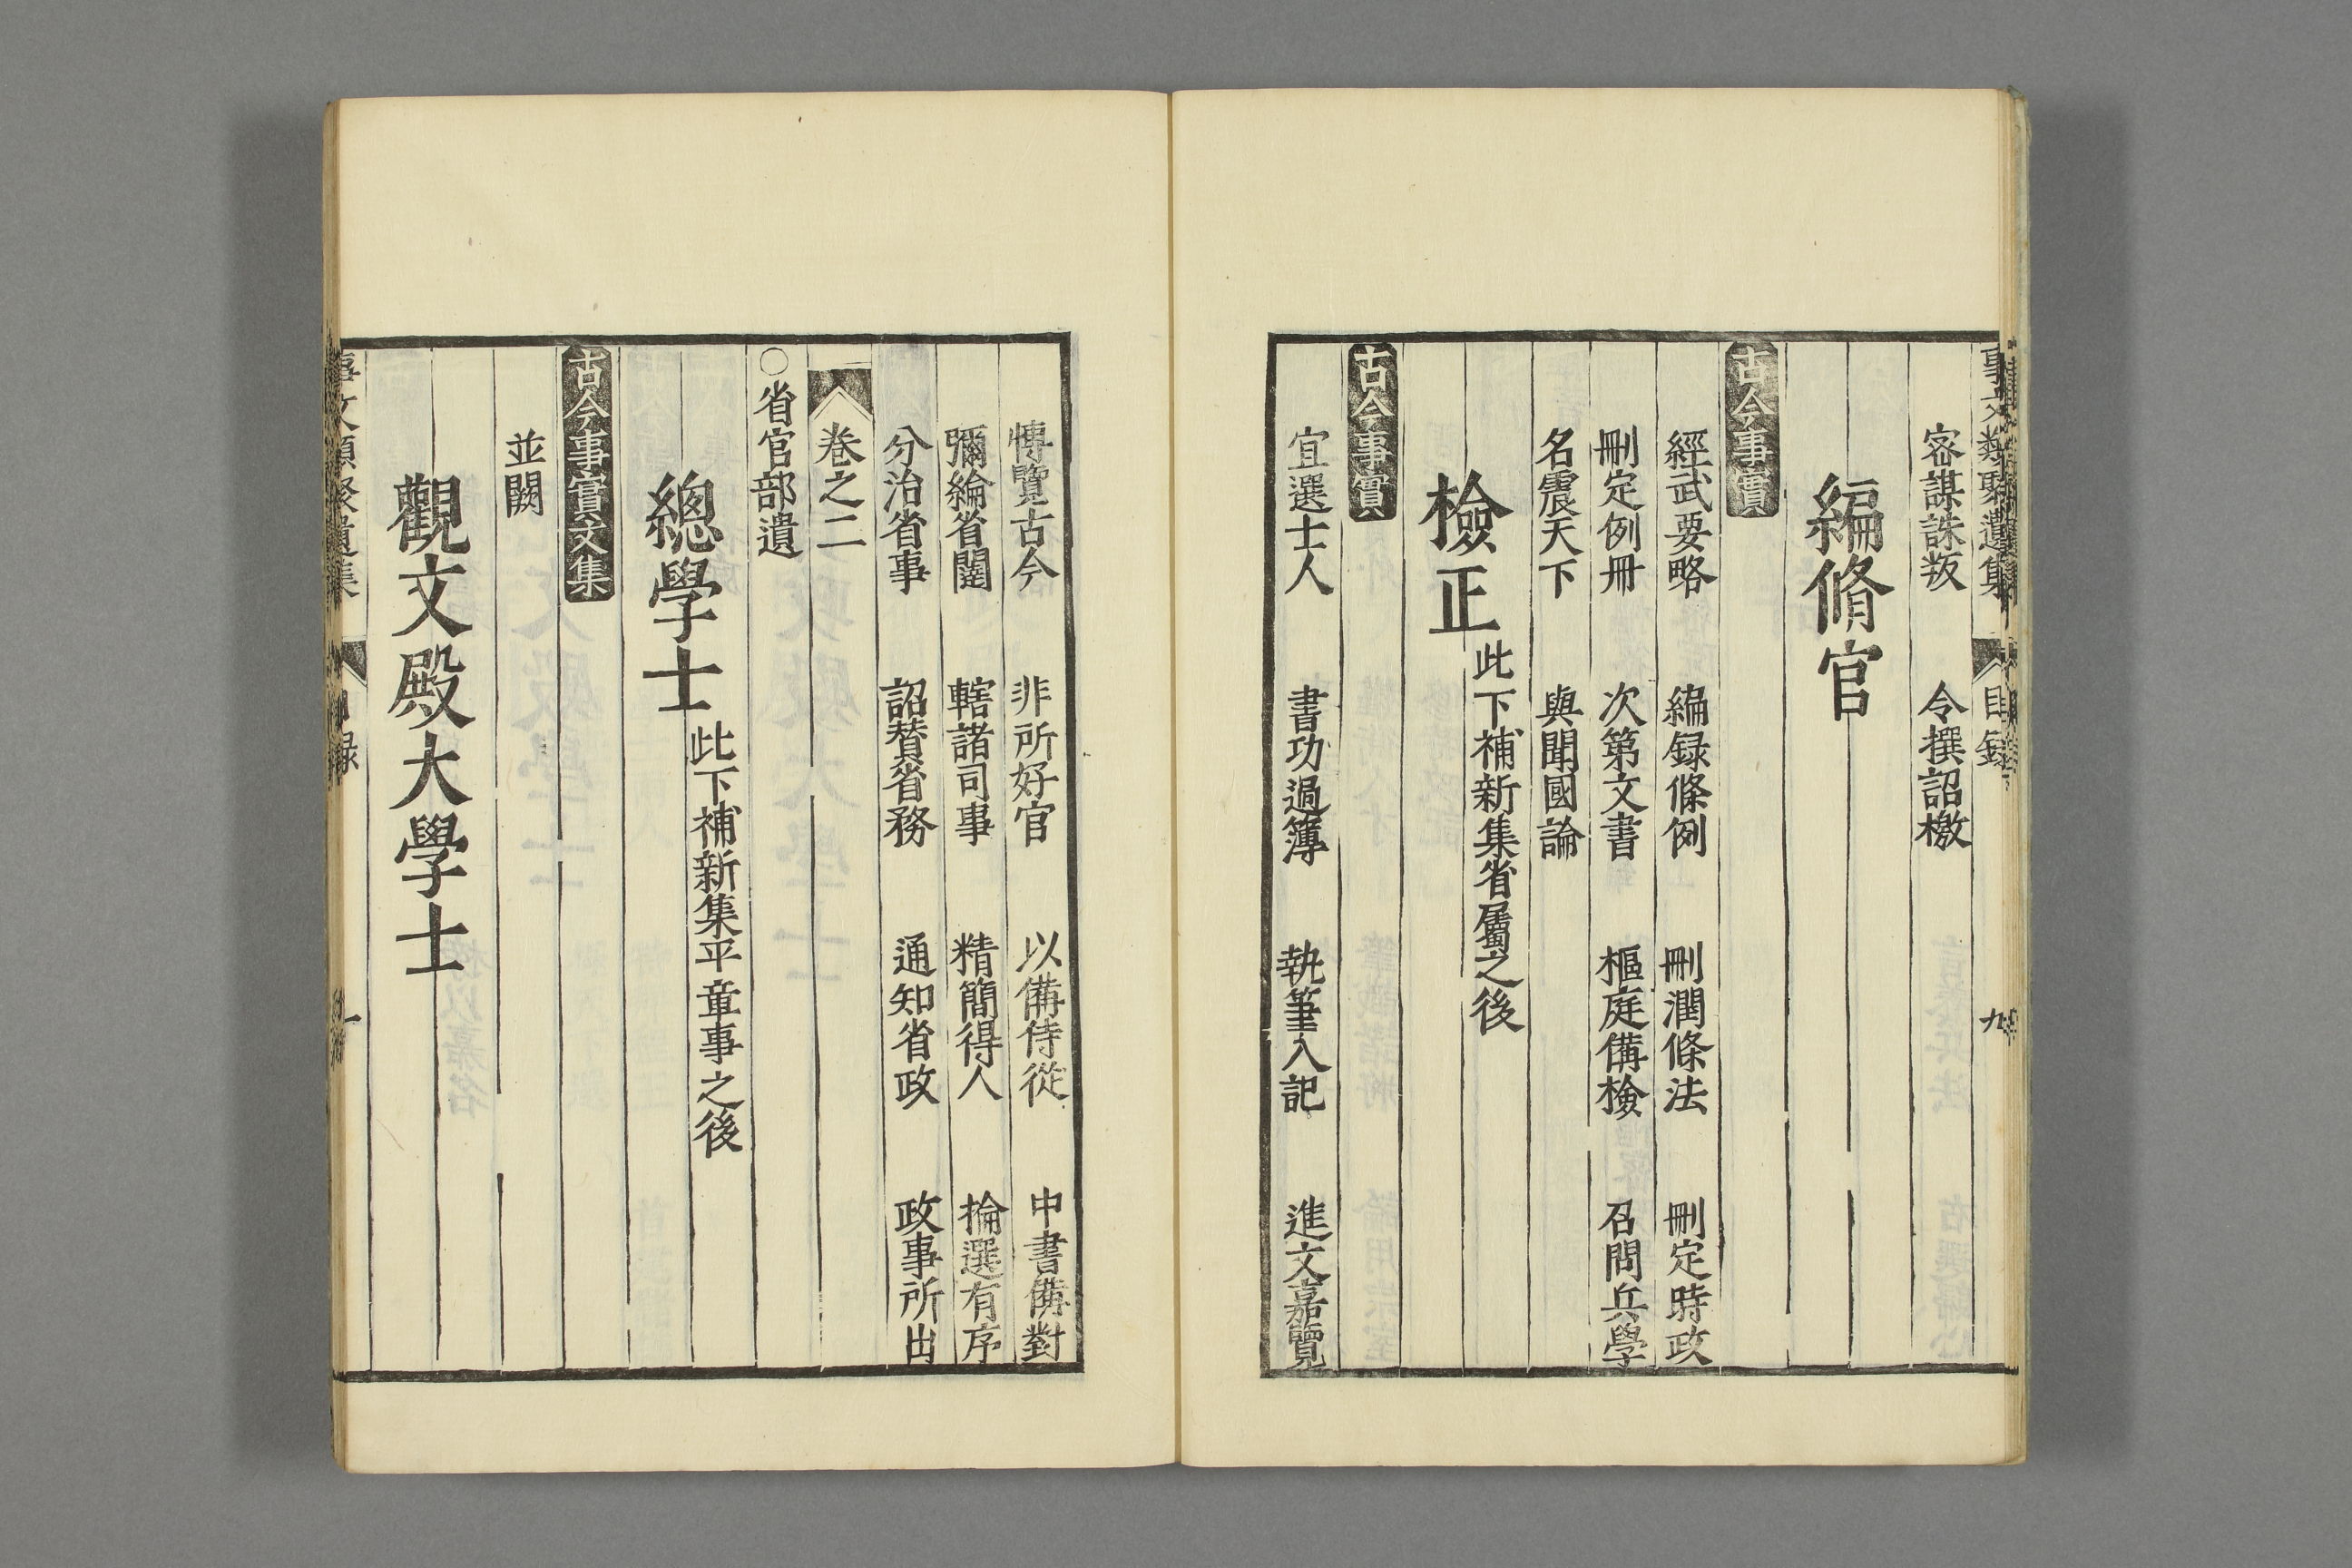 事文類聚遺集 目錄 九
密謀誅叛 令撰詔檄
編脩官
古今事實
經武要略 編録條例 刪潤條法 刪定時政
刪定例冊 次第文書 樞庭備檢 召問兵學
名震天下 與聞國論
檢正 此下補新集省屬之後
古今事實
宜選士人 書功過簿 執筆入記 進文嘉覽
博覽古今 非所好官 以備侍從 中書備對
彌綸省闥 轄諸司事 精簡得人 掄選有序
分治省事 詔賛省務 通知省政 政事所出
卷之二
○省官部遺
總學士 此下補新集平章事之後
古今事實文集
並闕
觀文殿大學士
事文類聚遺集 目録